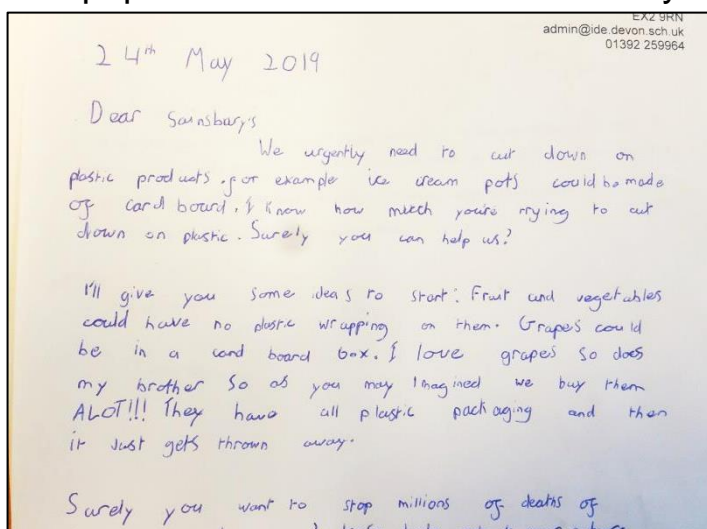 EX2 9RN
admin@ide.devon.sch.uk
01392 259964
24th May 2019
Dear Sainsbury's
We urgently need to cut down on
plastic products. for example ice cream pots could be made
of card board. I know how much you're trying to cut
down on plastic. Surely you can help us?
I'll give you some ideas to start: Fruit and vegetables
could have no plastic wrapping on them. Grapes could
be in a card board box. I love grapes so does
my brother so as you may Imagined we buy them
ALOT!!! They have all plastic packaging and then
it just gets thrown away.
Surely you want to stop millions of deaths of